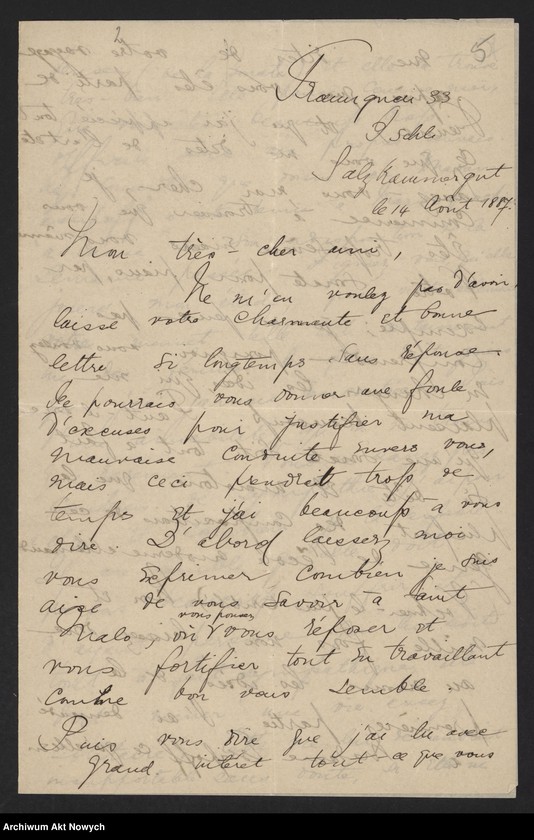 2
5
Traungau 33
Ischl
Salzkammergut
le 14 Août 1887.
Mon très-cher ami,
Ne m'en voulez pas d'avoir
laissé votre charmante et bonne
lettre si longtemps sans réponse.
Je pourrais vous donner une foule
d'excuses pour justifier ma
mauvaise conduite envers vous,
mais ceci prendrait trop de
temps et j'ai beaucoup à vous
dire. D'abord laissez moi
vous exprimer combien je suis
aise de vous savoir à saint
vous pouvez
Malo, où vous réposer et
vous fortifier tout en travaillant
comme bon vous semble.
Puis vous dire que j'ai lu avec
grand intéret tout-ce que vous
Archiwum Akt Nowych